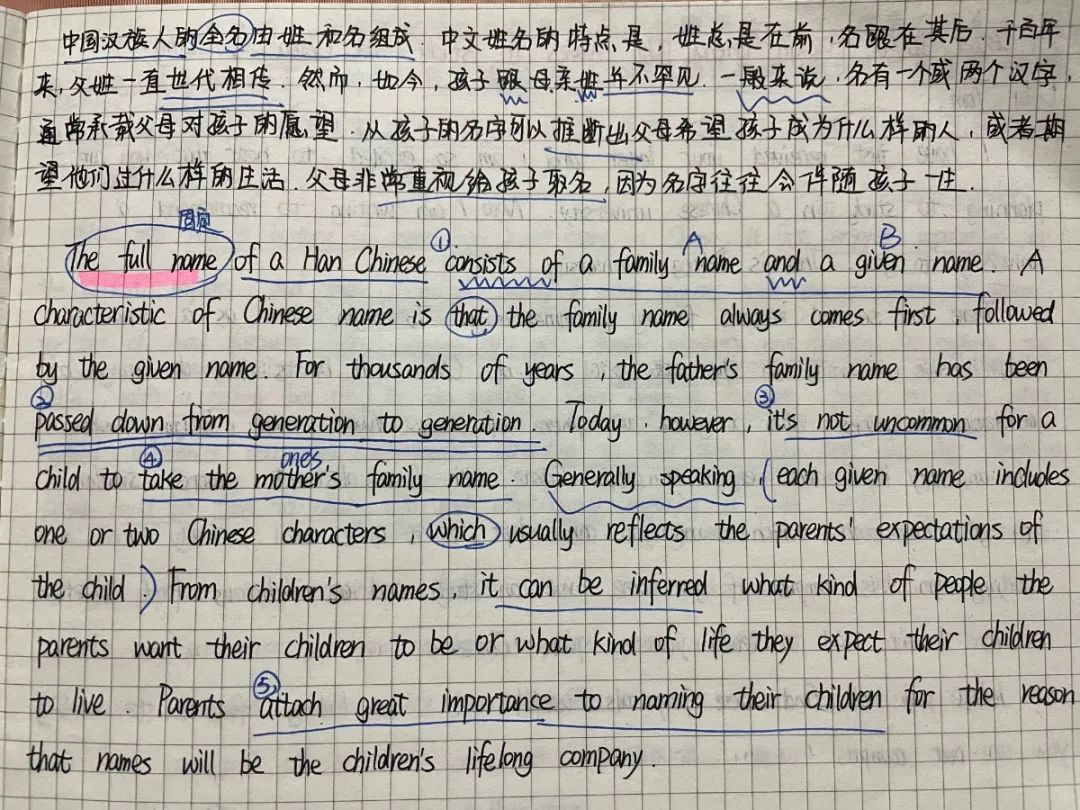 中国汉族人的全名由姓和名组成．中文姓名的特点是，姓总是在前，名跟在其后．千百年
来，父姓一直世代相传．然而，如今，孩子跟母亲姓并不罕见．一般来说．名有一个或两个汉字，
通常承载父母对孩子的愿望．从孩子的名字可以推断出父母希望孩子成为什么样的人，或者期
望他们过什么样的生活．父母非常重视给孩子取名，因为名字往往会伴随孩子一生．
固定
① A B
The full name of a Han Chinese consists of a family name and a given name. A
characteristic of Chinese name is that the family name always comes first, followed
by the given name. For thousands of years, the father's family name has been
② ③
passed down from generation to generation. Today, however, it's not uncommon for a
④ one's
child to take the mother's family name. Generally speaking, (each given name includes
one or two Chinese characters, which usually reflects the parents' expectations of
the child) From children's names, it can be inferred what kind of people the
parents want their children to be or what kind of life they expect their children
⑤
to live. Parents attach great importance to naming their children for the reason
that names will be the children's lifelong company.